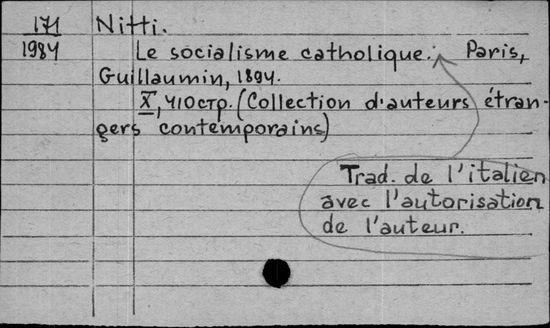 171 Nitti.
1984 Le socialisme catholique. Paris,
Guillaumin, 1894.
X, 410стр. (Collection d'auteurs étran-
gers contemporains)
Trad. de l'italien
avec l'autorisation
de l'auteur.